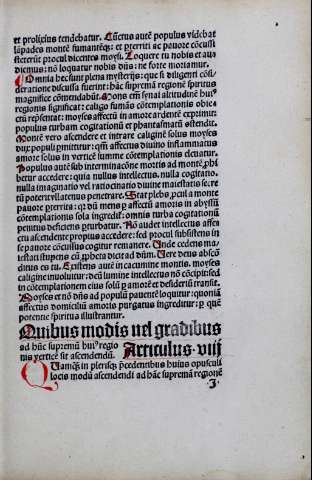 et prolixius tendebatur. Cūctus autē populus videbat
lāpades montē sumantēqȝ: et ꝑterriti ac pauore cōcussi
steterūt procul dicentes moysi. Loquere tu nobis et au
diemus: nō loquatur nobis dn̄s: ne forte moriamur.
Omnia hec sunt plena mysterijs: que si diligenti cōsi
deratione discussa fuerint: hāc supremā regionē spiritus
magnifice cōmendabūt. Mons em̄ synai altitudinē huiꝰ
regionis significat: caligo sumās cōtemplationis obie⸗
ctū rep̄sentat: moyses affectū in amore ardentē exprimit:
populus turbam cogitationū et phantasmatū ostendit.
Montē vero ascendere et intrare caliginē solus moyses
dux populi ꝑmittitur: qm̄ affectus diuino inflammatus
amore solus in verticē summe cōtemplationis eleuatur.
Populus autē sub interminatiōe mortis ad montē ꝓhi
betur accedere: quia nullus intellectus, nulla cogitatio,
nulla imaginatio vel ratiocinatio diuine maiestatis secre
tū poterit vllatenus penetrare. Stat plebs ꝓcul a monte
pauore ꝑterrita: qꝛ dū mens ꝑ affectū amoris in abyssū
cōtemplationis sola ingredit᷑: omnis turba cogitationū
penitus deficiens ꝑturbatur. Nō audet intellectus affe⸗
ctu ascendente propius accedere: sed procul subsistens in
se pauore cōcussus cogitur remanere.
tati stupens cū ꝓpheta dicit ad dūm. Uere deus abscō
ditus es tu. Existens autē in cacumine montis, moyses
caligine inuoluitur: dcū lumine intellectus nō cōcipiendū
in contemplationem eius solū ꝑ amorē et desideriū transit.
Moyses et nō dn̄s ad populū pauentē loquitur: quoniā
affectus domiciliū amoris purgatus ingreditur: ꝑ quē
potentie spiritus illustrantur.
Quibus modis vel gradibus
ad hāc supremū huiꝰ regio
nis verticē sit ascendendū. Articulus .viij
QUamqȝ in pleriſqȝ p̄cedentibus huius opusculi
locis modū ascendendi ad hāc supremā regionē
.J.